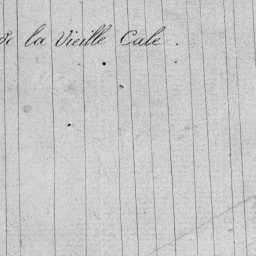 de la Vieille Cale.